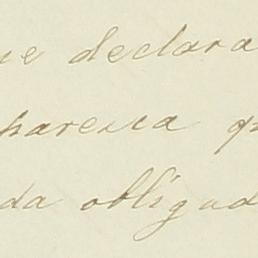 ue declara
parezca q
da obligad